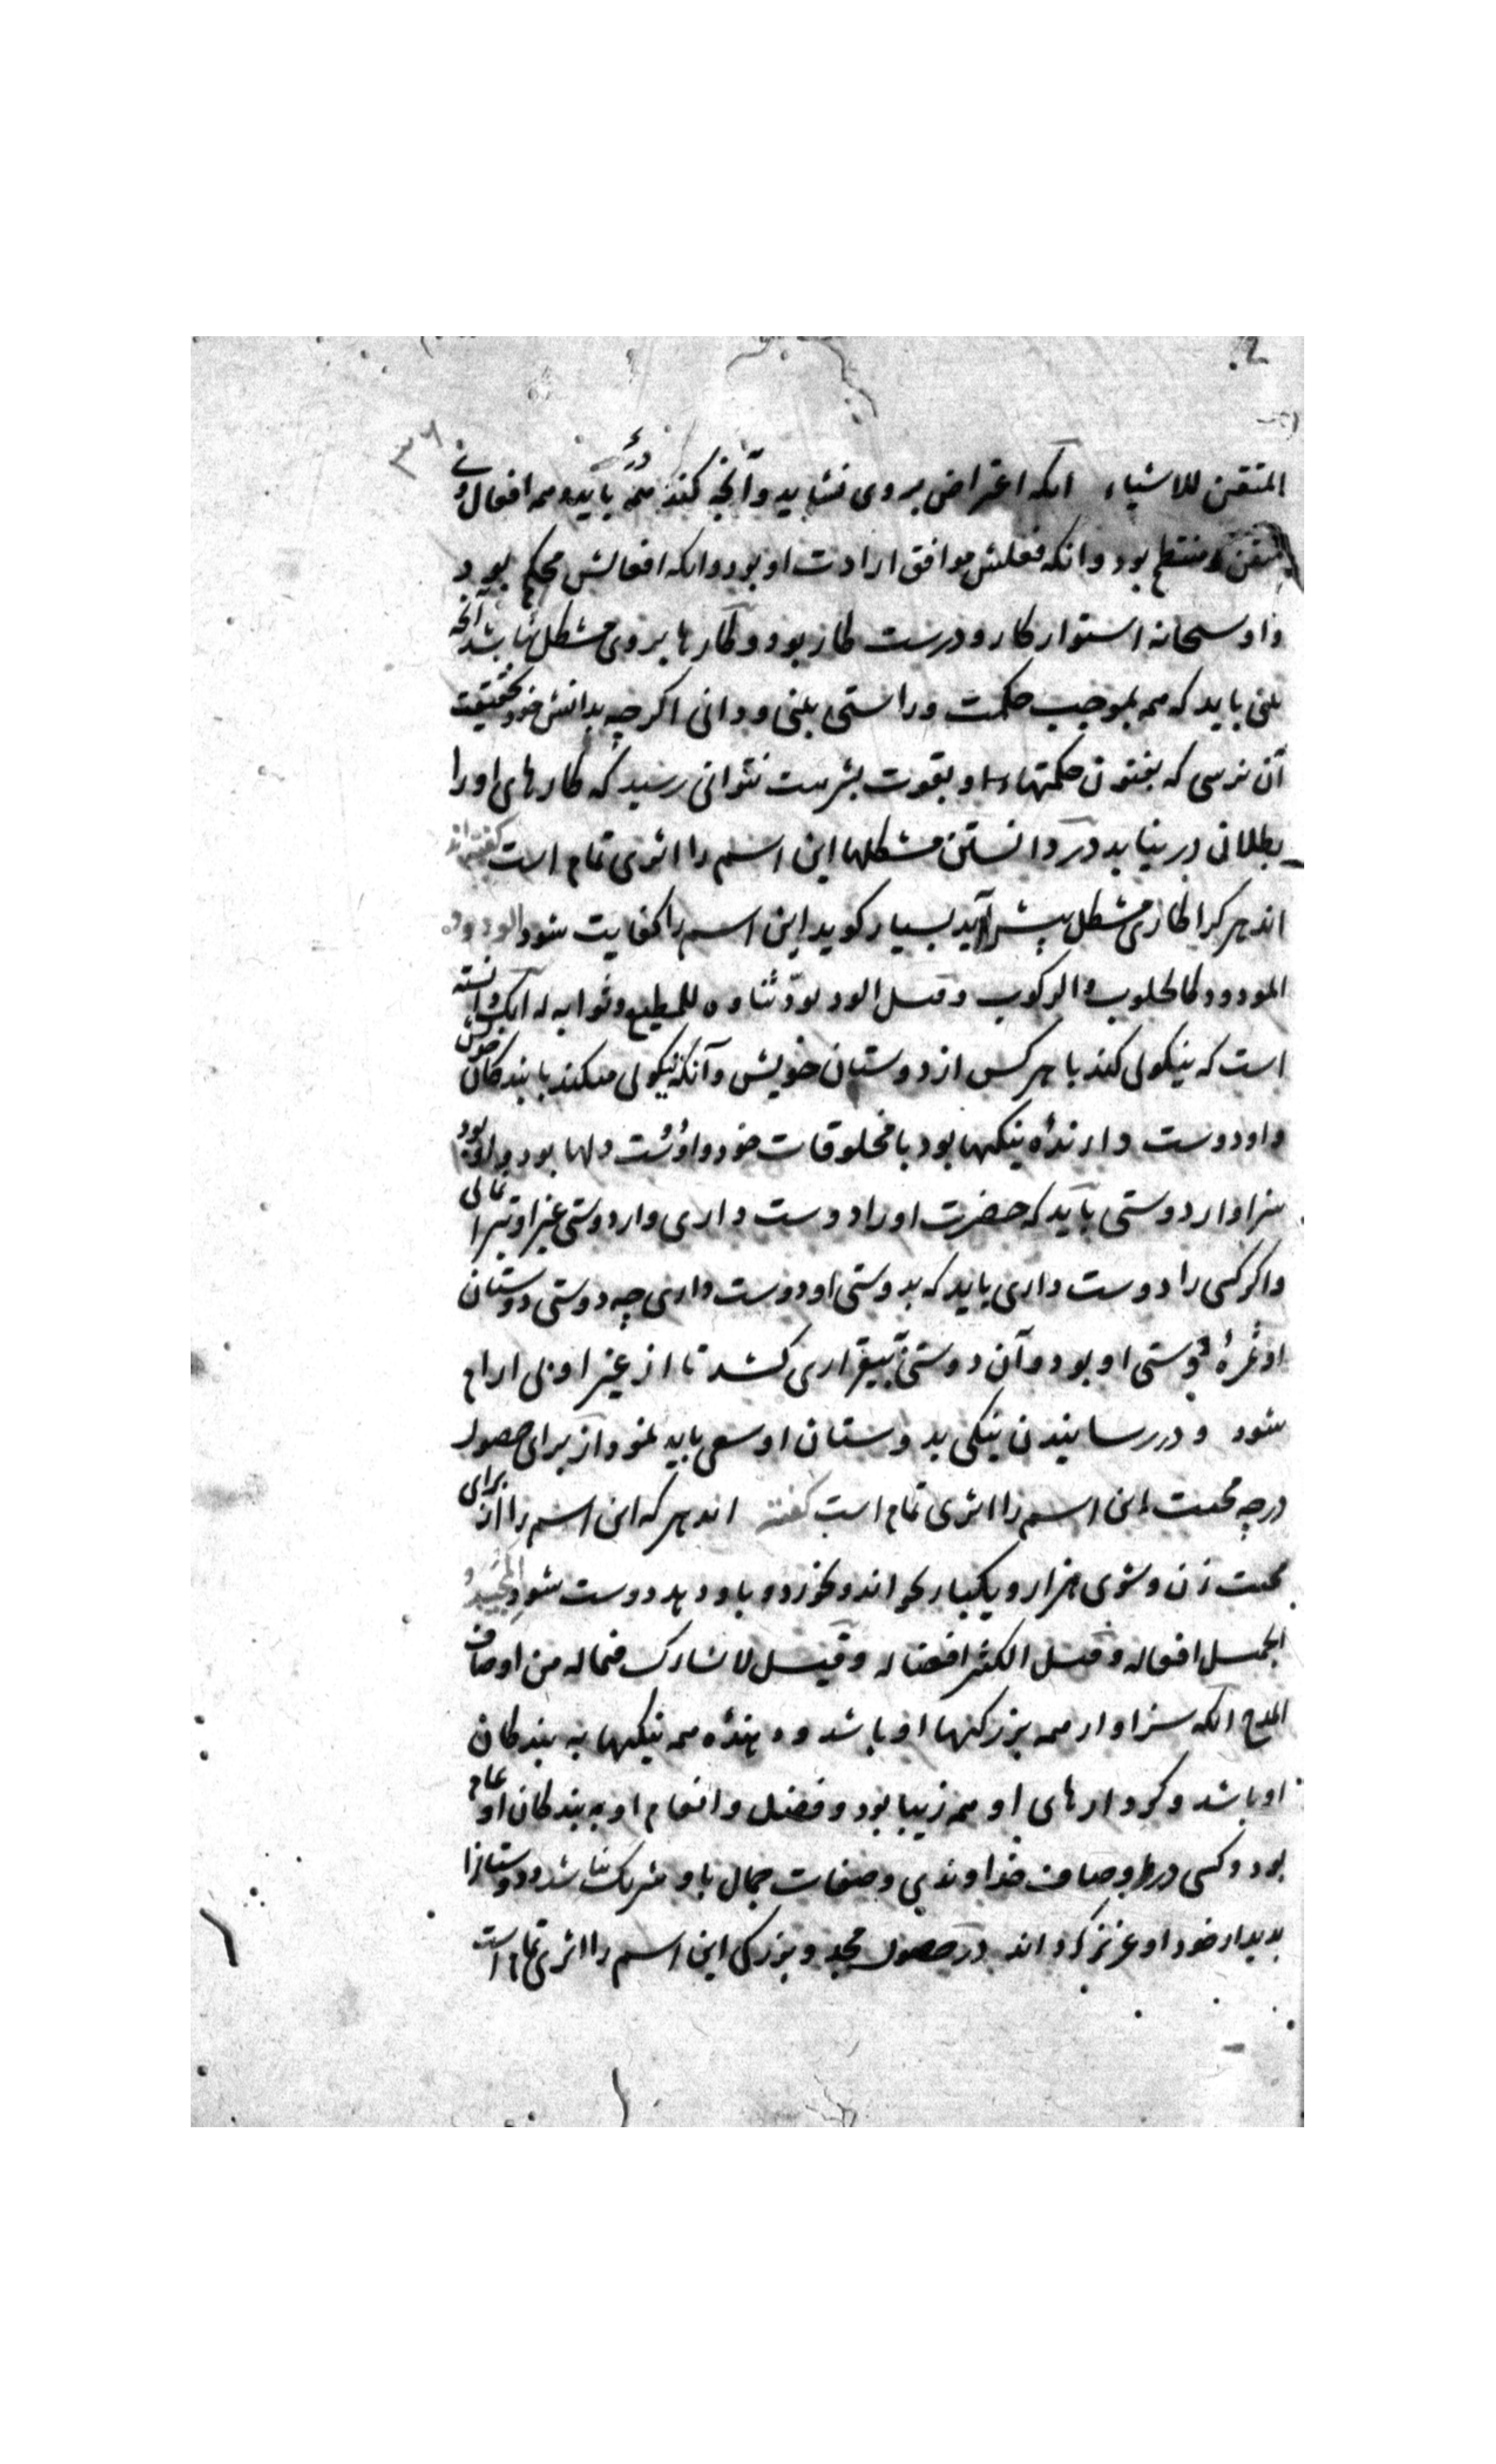 ۳۶
المتقن للاشیاء آنکه اعتراض بروی نشاید و آنچه کند همه باید و همه افعال وی
متقن و منتظم بود و آنکه فعلش موافق ارادت او بود و آنکه افعالش محکم بود
و او سبحانه استوار کار و درست کار بود و کارها بروی مشکل نباشد آنچه
بینی باید که همه بموجب حکمت و راستی بینی و دانی اگرچه بدانش خود بحقیقت
آن نرسی که بفنون حکمتهاء او بقوت بشریت نتوانی رسید که کارهای او را
بطلانی در نیابد در دانستن مشکلها این اسم را اثری تمام است گفته اند
اند هر کرا کاری مشکل پیش آید بسیار گوید این اسم را کفایت شود الودود
المودود کالحلوب والرکوب و قیل الود بود ثناوه للمطیع و ثوابه له آنک دانسته
است که نیکوئی کند با هر کس از دوستان خویش و آنکه نیکوئی میکند با بندکان خویش
و او دوست دارنده نیکیها بود با مخلوقات خود و او دوست دلها بود و او بود
سزاوار دوستی باید که حضرت او را دوست داری و از دوستی غیر او تبرا نمائی
و اگر کسی را دوست داری باید که بدوستی او دوست داری چه دوستی دوستان
او ثمرهٔ دوستی او بود و آن دوستی بیقراری کشد تا از غیر او بی ارام
شود و در رسانیدن نیکی بدوستان او سعی باید نمود از برای حصول
درجه محبت این اسم را اثری تمام است گفته اند هر که این اسم را از برای
محبت زن و شوی هزار و یکبار بخواند و بخورد و باو دهد دوست شود المجید
الجمیل افعاله و قیل الکثیر افضاله و قیل لا یشارک فیما له من اوصاف
المدح آنکه سزاوار همه بزرکیها او باشد و دهنده همه نیکیها به بندکان
او باشد و کردارهای او همه زیبا بود و فضل و انعام او به بندکان او عام
بود و کسی در اوصاف خداوندی و صفات جمال با او شریک نباشد و دوستانرا
بدیدار خود او عزیز کرداند در حصول مجد و بزرکی این اسم را اثری تمام است